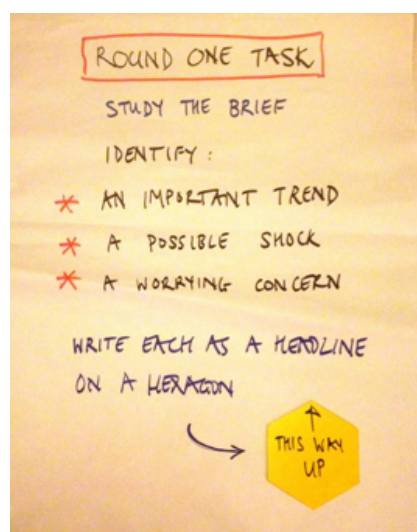 ROUND ONE TASK
STUDY THE BRIEF
IDENTIFY:
* AN IMPORTANT TREND
* A POSSIBLE SHOCK
* A WORRYING CONCERN
WRITE EACH AS A HEADLINE
ON A HEXAGON
↑
THIS WAY
UP